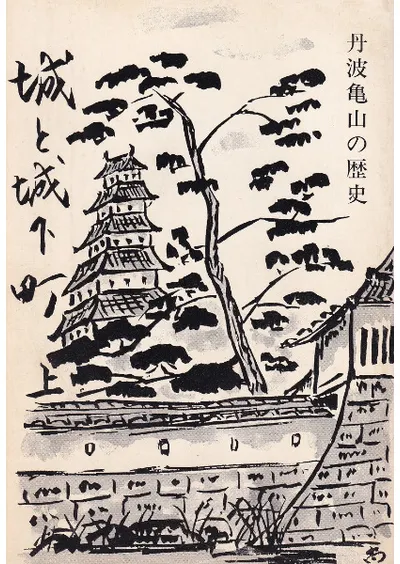 丹波亀山の歴史
城と城下町
上